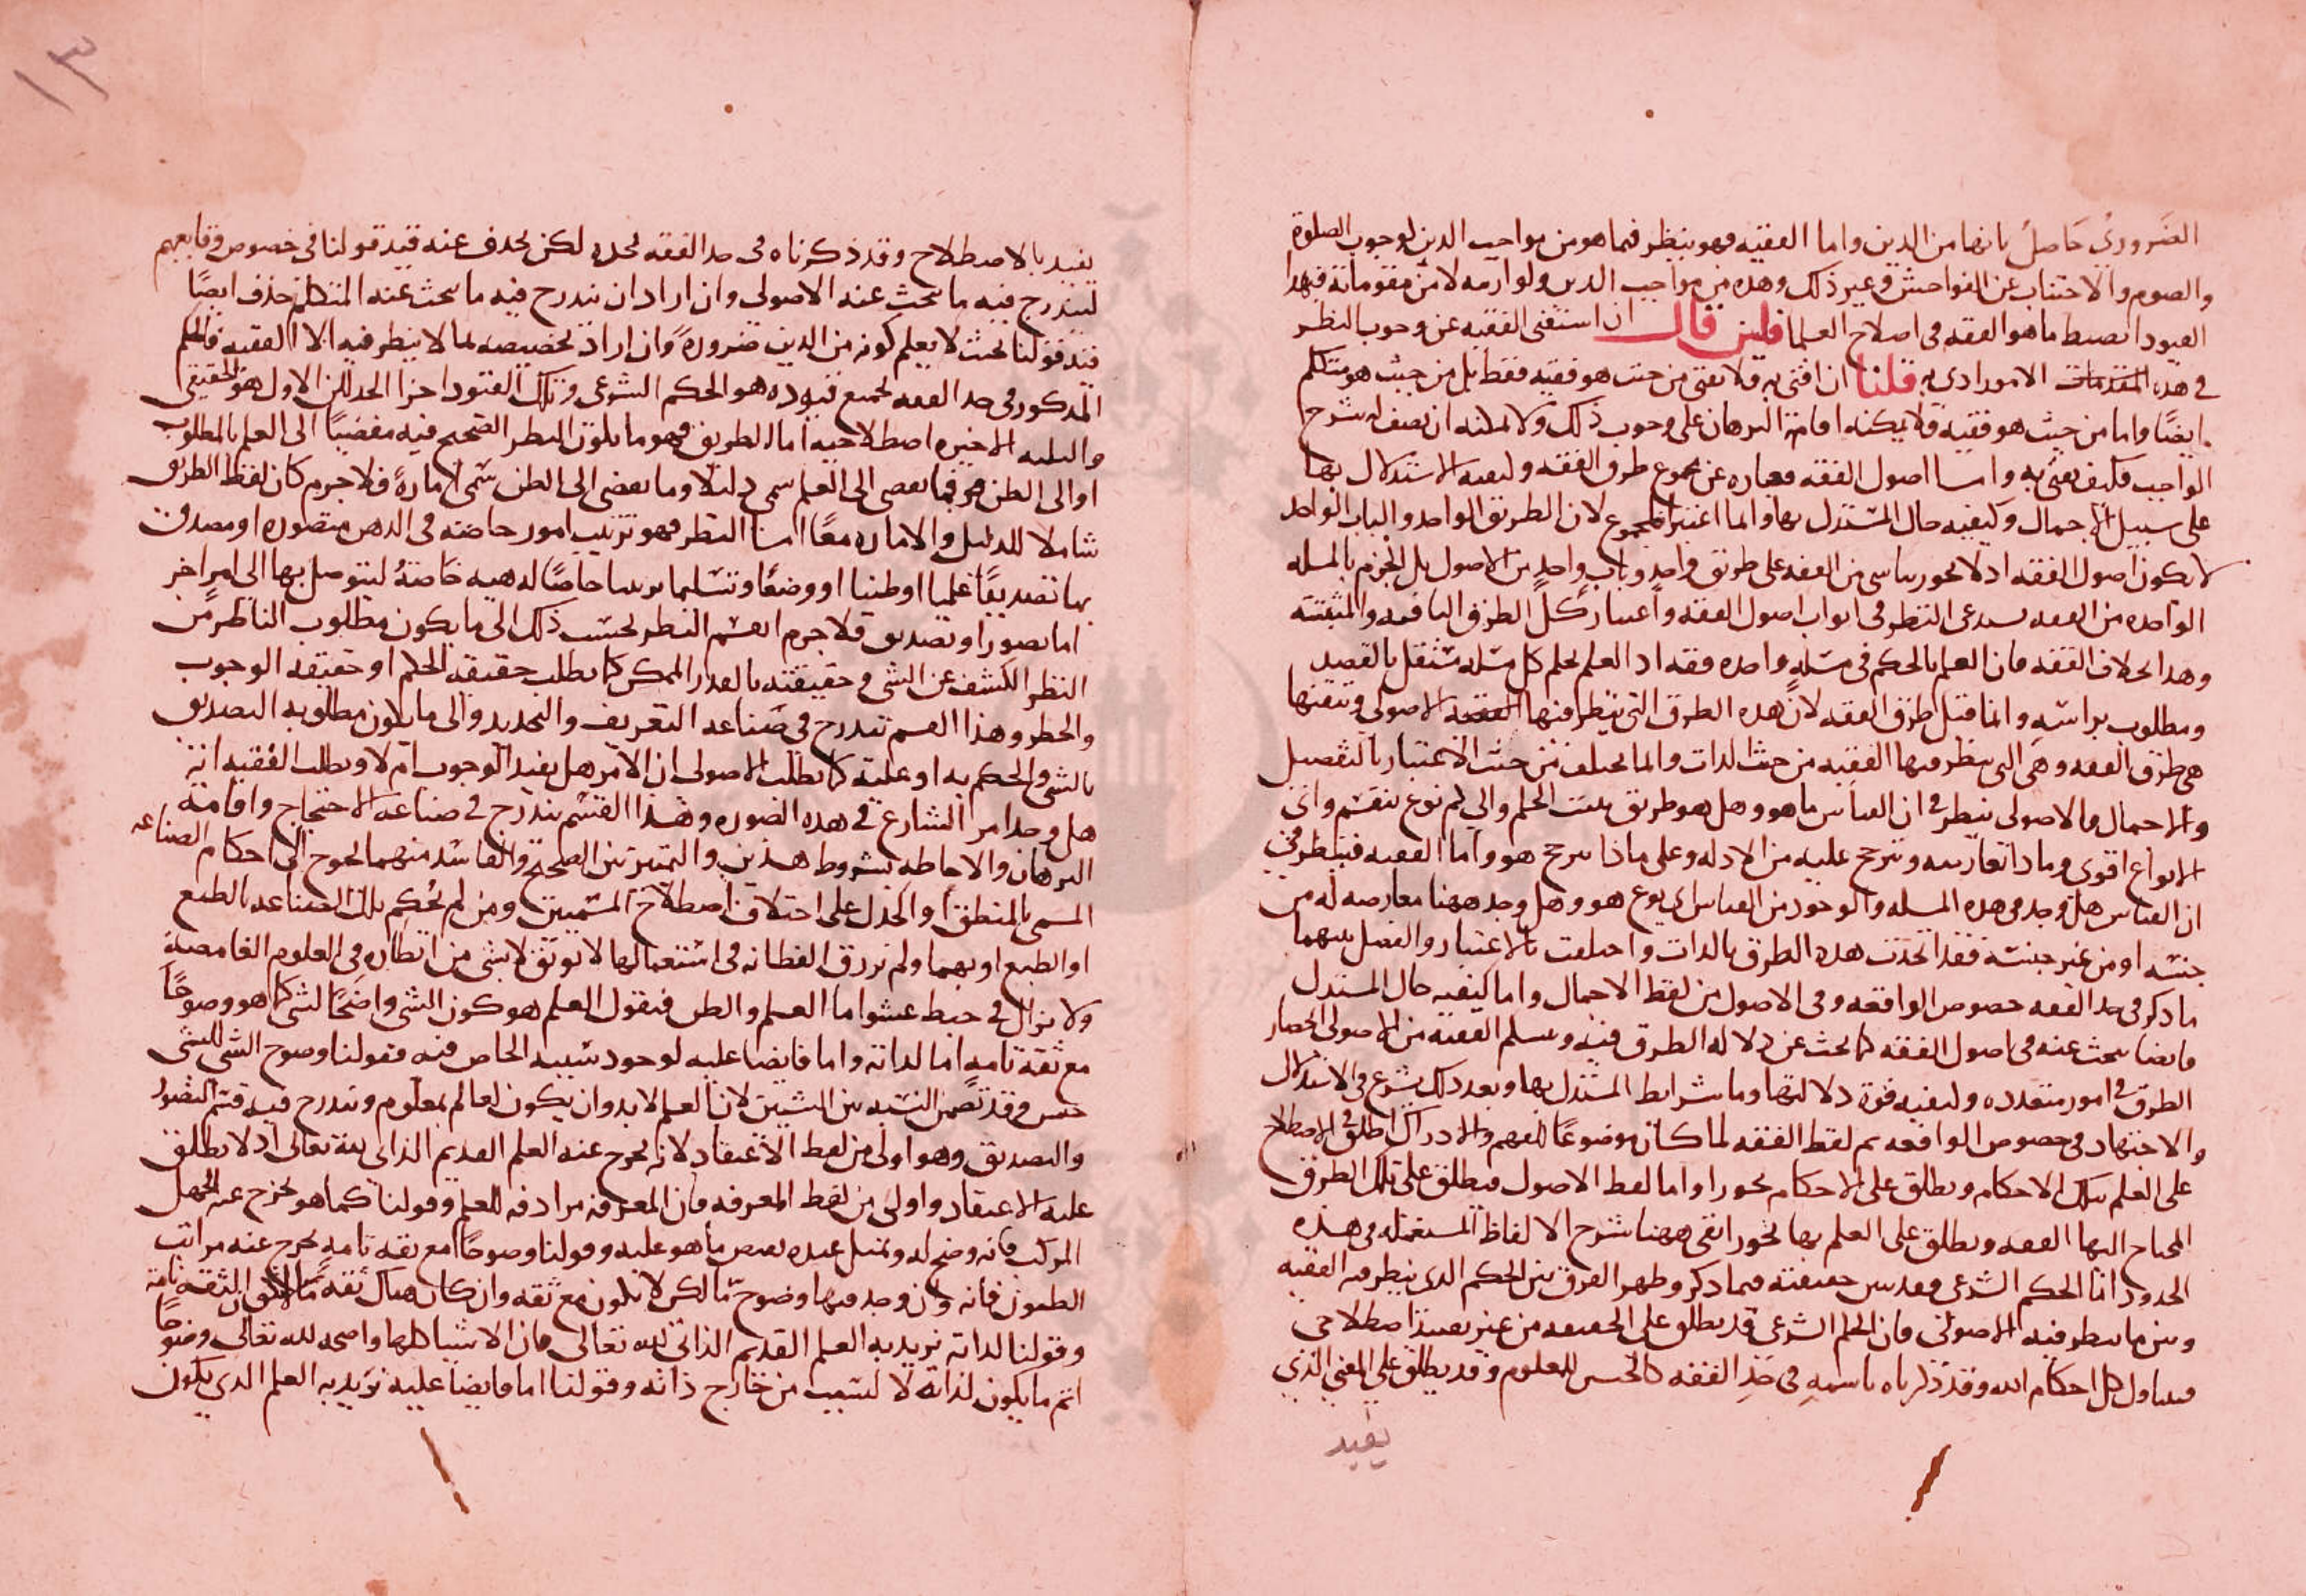 الضروري حاصل بانها من الدين واما الفقيه فهو ينظر فيما هو من مواجب الدين لوجوب الصلوة
والصوم والاجتناب عن الفواحش وغير ذلك وهذه من مواجب الدين ولوازمه لا من مقوماته فبهذا
القيود انضبط ما هو الفقه في اصلاح العلما فلين قال ان استفتى الفقيه عن وجوب النظر
في هذه المقدمات الامور ادى به قلنا ان افتى به فلا يفتى من حيث هو فقيه فقط بل من حيث هو متكلم
ايضا واما من حيث هو فقيه فلا يمكنه اقامة البرهان على وجوب ذلك ولا يمكنه ان يصف له شرح
الواجب فكيف يفتى به واما اصول الفقه فعباره عن مجموع طرق الفقه وكيفيه الاستدلال بها
على سبيل الاجمال وكيفيه حال المستدل بها وانما اعتبرنا المجموع لان الطريق الواحد والباب الواحد
لا يكون اصول الفقه اذ لا يحور بنا شي من الفقه على طريق واحد وباب واحد من الاصول بل الجزم بالمسله
الواحده من الفقه يستدعى النظر في ابواب اصول الفقه واعتبار كل الطرق النافيه والمثبته
وهذا بخلاف الفقه فان العلم بالحكم في مسله واحده فقه اذ العلم بحكم كل مسله مستقل بالقصد
ومطلوب براسه وانما قيل طرق الفقه لان هذه الطرق التي ينظر فيها الاصولي ويتقنها
هي طرق الفقه وهي التي ينظر فيها الفقيه من حيث الذات وانما يختلف من حيث الاعتبار بالتفصيل
والاجمال فالاصولي ينظر في ان القياس ما هو وهل هو طريق يثبت الحكم والى كم نوع ينقسم واي
الانواع اقوى وماذا يعارضه ويترجح عليه من الادله وعلى ماذا يترجح هو واما الفقيه فينظر في
ان القياس هل وجد في هذه المسله والموجود من القياس اي نوع هو وهل وجد ههنا معارضه له من
جنسه او من غير جنسه فقد اتحدت هذه الطرق بالذات واختلفت بالاعتبار والفصل بينهما
ما ذكر في حد الفقه خصوص الواقعه وفي الاصول من لفظ الاجمال واما كيفيه حال المستدل
فايضا يبحث عنه في اصول الفقه كما يبحث عن دلاله الطرق فيه ويتسلم الفقيه من الاصولي انحصار
الطرق في امور متعدده وكيفيه قوة دلالتها وما شرايط المستدل بها وبعد ذلك يشرع في الاستدلال
والاجتهاد في خصوص الواقعه ثم لفظ الفقه لما كان موضوعا للفهم والادراك اطلق في الاصطلاح
على العلم بتلك الاحكام ويطلق على الاحكام تجوزا واما لفظ الاصول فيطلق على تلك الطرق
المحتاج اليها الفقه ويطلق على العلم بها تجوزا بقي ههنا شرح الالفاظ المستعمله في هذه
الحدود اما الحكم الشرعي فقد بين حقيقته فيما ذكر وظهر الفرق بين الحكم الذي ينظر فيه الفقيه
وبين ما ينظر فيه الاصولي فان الحكم الشرعي قد يطلق على الحقيقه من غير تقييد اصطلاحي
فيتناول كل احكام الله وقد ذكرناه باسمه في حد الفقه كالجنس للمعلوم وقد يطلق على المعنى الذي
يفيد
١٣
يفيد بالاصطلاح وقد ذكرناه في حد الفقه بحده لكن يحذف عنه قيد قولنا في خصوص وقايعهم
ليندرج فيه ما يبحث عنه الاصولى وان اراد ان يندرج فيه ما يبحث عنه المتكلم حذف ايضا
قيد قولنا بحيث لا يعلم كونه من الدين ضرورة وان اراد تخصيصه بما لا ينظر فيه الا الفقيه فالحكم
المذكور في حد الفقه بجميع قيوده هو الحكم الشرعي وتلك القيود اجزا الحد لكن الاول هو الحقيقي
والثلثه الاخيره اصطلاحيه اما الطريق فهو ما يكون النظر الصحيح فيه مفضيا الى العلم بالمطلوب
او الى الظن به فما يفضى الى العلم سمي دليلا وما يفضى الى الظن سمي امارة فلا جرم كان لفظ الطريق
شاملا للدليل والاماره معا اما النظر فهو ترتيب امور حاضره في الذهن متصوره او مصدق
بها تصديقا علميا او ظنيا او وضعا وتسليما ترتيبا خاصا له هيه خاصة ليتوصل بها الى امر اخر
اما تصورا او تصديق فلا جرم انقسم النظر بحسب ذلك الى ما يكون مطلوب الناظر من
النظر الكشف عن الشي وحقيقته بالقدر الممكن كما يطلب حقيقه الحكم او حقيقه الوجوب
والحظر وهذا القسم يندرج في صناعه التعريف والتحديد والى ما يكون مطلوبه التصديق
بالشي والحكم به او عليه كما يطلب الاصولى ان الامر هل يفيد الوجوب ام لا ويطلب الفقيه انه
هل وجد امر الشارع في هذه الصوره وهذا القسم يندرج في صناعه الاحتجاج واقامة
البرهان والاحاطه بشروط هذين والتمييز بين الصحيح والفاسد منهما يحوج الى احكام الصناعه
المسمى بالمنطق او الجدل على اختلاف اصطلاح المسميين ومن لم يحكم تلك الصناعه بالطبع
او الطبع او بهما ولم يرزق الفطانه في استعمالها لا يوثق لا بشي من انظاره في العلوم الغامضه
ولا يزال في خبط عشوا اما العلم والظن فنقول العلم هو كون الشي واضحا لشي كما هو وضوحا
مع ثقة تامه اما لذاته واما فايضا عليه لوجود سببه الخاص فيه فقولنا وضوح الشي للشي
جنس وقد تضمن النسبه بين الشيين لان العلم لا بد وان يكون لعالم بمعلوم ويندرج فيه قسم التصور
والتصديق وهو اولى من لفظ الاعتقاد لانه يخرج عنه العلم القديم الذاتى لله تعالى اذ لا يطلق
عليه الاعتقاد واولى من لفظ المعرفه فان المعرفه مرادفه للعلم وقولنا كما هو يخرج عنه الجهل
المركب فانه وضح له وتمثل عنده نقيض ما هو عليه وقولنا وضوحا مع ثقه تامه يخرج عنه مراتب
الظنون فانه وان وجد فيها وضوح ما لكن لا يكون مع ثقه وان كان هناك ثقه ما لا تكون الثقه تامة
وقولنا لذاته نريد به العلم القديم الذاتى لله تعالى فان الاشيا كلها واضحه لله تعالى وضوحا
اتم ما يكون لذاته لا لسبب من خارج ذاته وقولنا اما فايضا عليه نريد به العلم الذي يكون